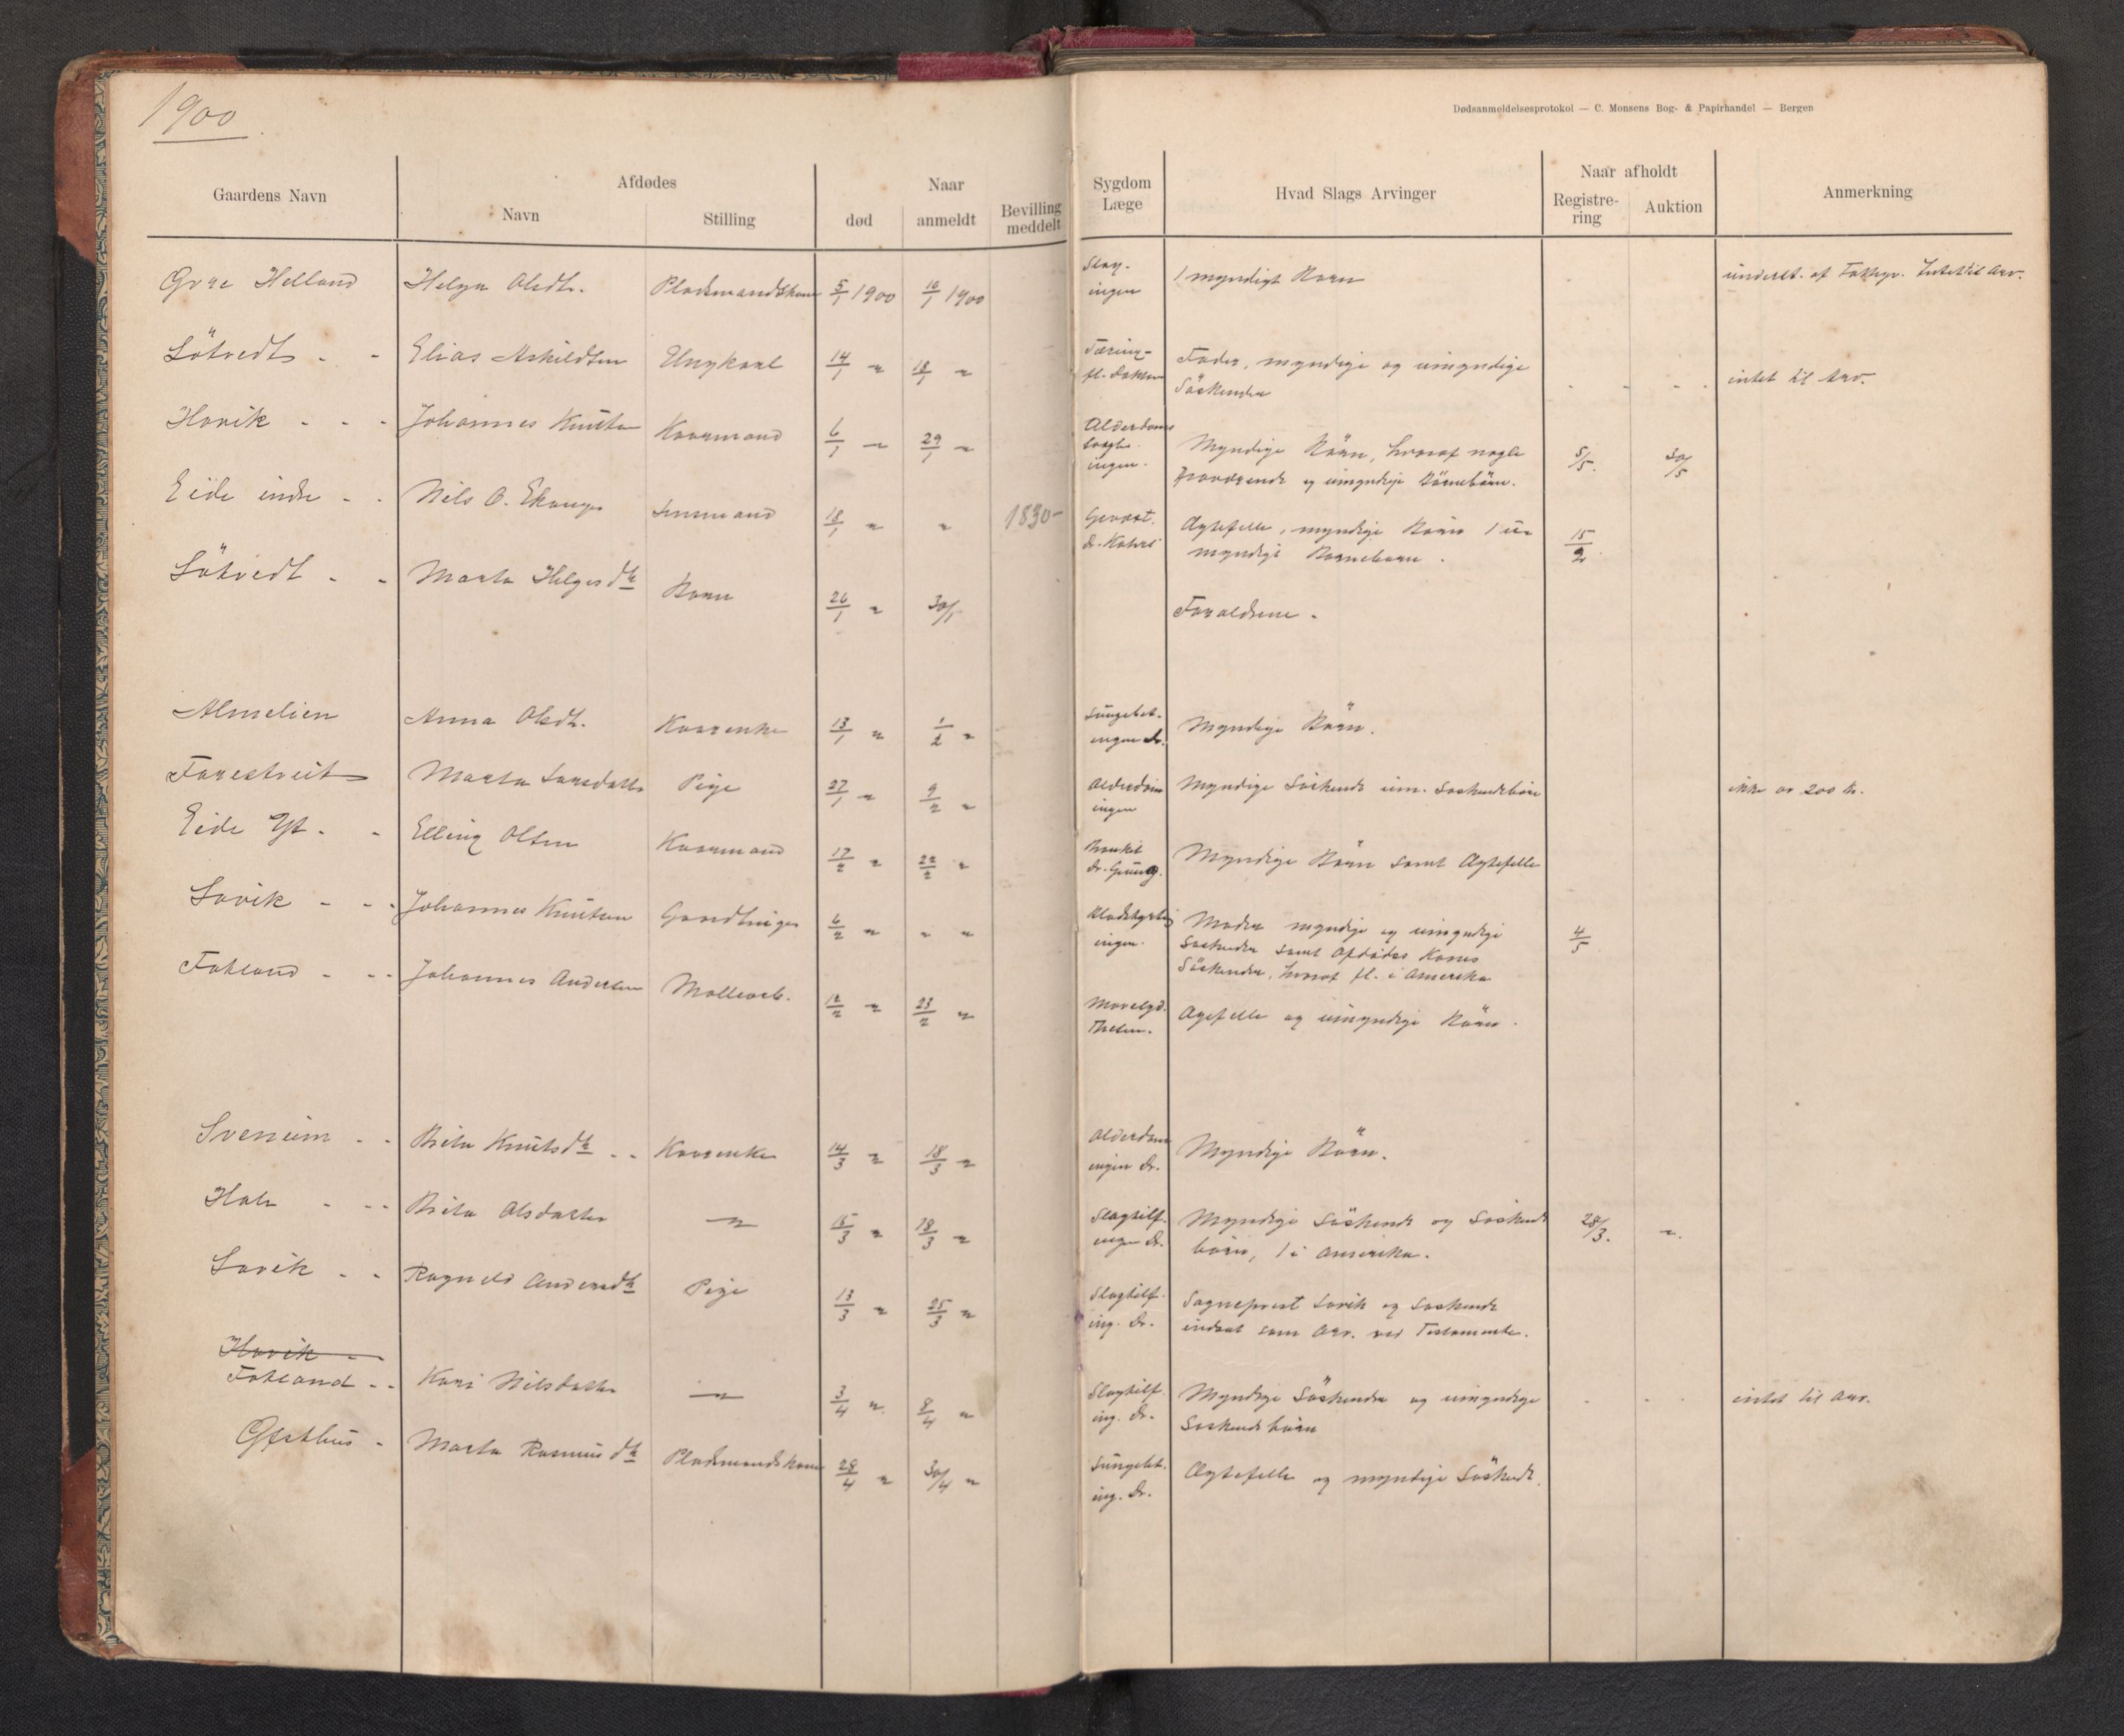 1900
Dødsanmeldelsesprotokol — C. Monsens Bog- & Papirhandel — Bergen
Gaardens Navn
Afdødes
Navn
Stilling
Naar
død
anmeldt
Bevilling
meddelt
Sygdom
Læge
Hvad Slags Arvinger
Naar afholdt
Registre-
ring
Auktion
Anmerkning
Helland Helga Olsdtr. Pladsmandskone 5/1 1900 16/1 1900
Slag. ingen
1 myndigt Barn
underst. af Fattigv. Intet til Arv.
Lötvedt - - Elias Askildsen Ungkarl 14/1 " 18/1 "
Tæring
Fader, myndige og umyndige
Söskende
intet til Arv.
Hovik - - - Johannes Knutsen Kaarmand 6/1 " 29/1 "
Alderdoms
ingen.
Myndige Börn, hvoraf nogle
fraværende og umyndige Börnebörn.
5/5. 30/5
Eide indre - - Nils O. 18/1 " " 1830-
Ægtefelle, myndige Börn 1 u-
myndigt Barnebarn.
15/2
Lötvedt - - Marta Helgesdtr Barn 26/1 " 30/1
Foræeldrene -
Almelien Anna Olsdtr. Kaarenke 13/1 " 1/2 "
Lungebet.
ingen Dr.
Myndige Börn.
Marta Larsdatter Pige 27/1 " 9/2 "
Alderdom
ingen
Myndige Söskende um. Söskendebörn
ikke ov 200 Kr.
Eide Yt - - Elling Olsen Kaarmand 17/2 " 22/2 "
Myndige Börn samt Ægtefelle
Lavik - - - Johannes Knutsen Gaardbruger 6/2 " " "
ingen.
Moder myndige og umyndige
Söskende samt Afdödes Kones
Söskende, hvoraf fl. i Amerika
4/5
Fotland - - - Johannes Andersen 12/2 " 23/2 "
Ægtefelle og umyndige Börn.
- - Brita Knutsdtr - - Kaarenke 14/3 " 18/3 "
Alderdom
ingen Dr.
Myndige Börn.
- - - Brita Olsdatter " 15/3 " 18/3 "
Slagtilf.
ingen Dr.
Myndige Söskende og Söskende
börn, 1 i Amerika.
28/3. ".
Lavik - - Ragnild Andersdtr Pige 13/3 " 25/3 "
Slagtilf.
ing. Dr.
Sogneprest Lavik og Söskende
indsat som Arv. ved Testamente.
Hovik -
Fotland - - Kari Nilsdatter " 3/4 " 8/4 "
Slagtilf.
ing. Dr.
Myndige Söskende og umyndige
Söskendebörn
intet til Arv.
- Marta Rasmusdtr Pladsmandskone 28/4 " 30/4 "
Lungebet.
ing. Dr.
Ægtefelle og myndige Söskende.